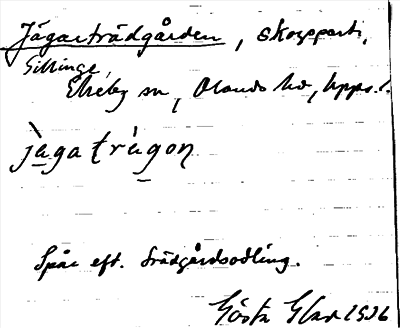 Jägarträdgården, skogsparti,
Gillinge,
Ekeby sn, Olands hd, Upps. l.
jägaträgon
Spår eft. trädgårdsodling.
Gösta 1936